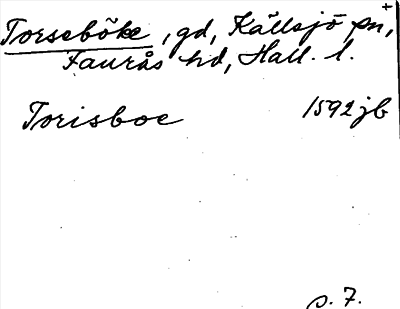 Torseböke, gd, Källsjö sn, +
Faurås hd, Hall. l.
Torisboe 1592 jb
s. 7.